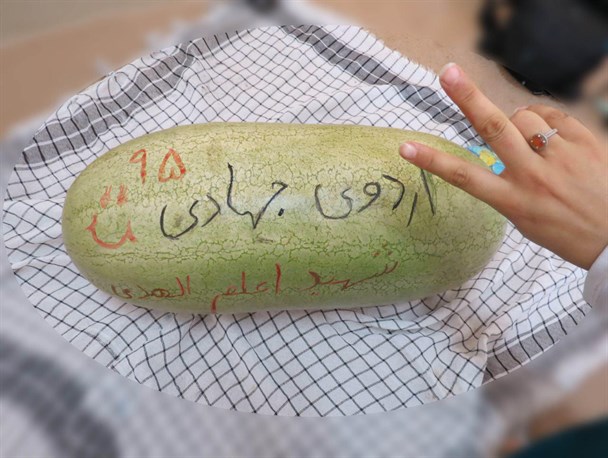 ۹۵
اردوی جهادی
شهید اعلم الهدی